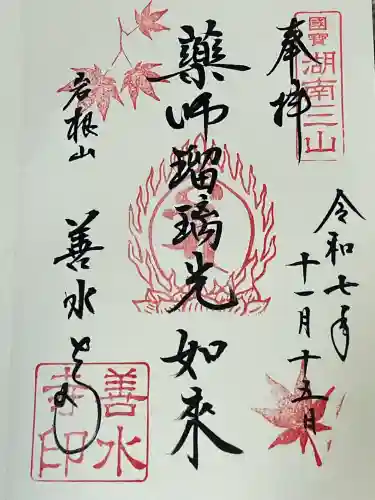 奉拝
國寶
湖南三山
令和七年
十一月十五日
藥師瑠璃光如来
岩根山
善水
善水
寺印